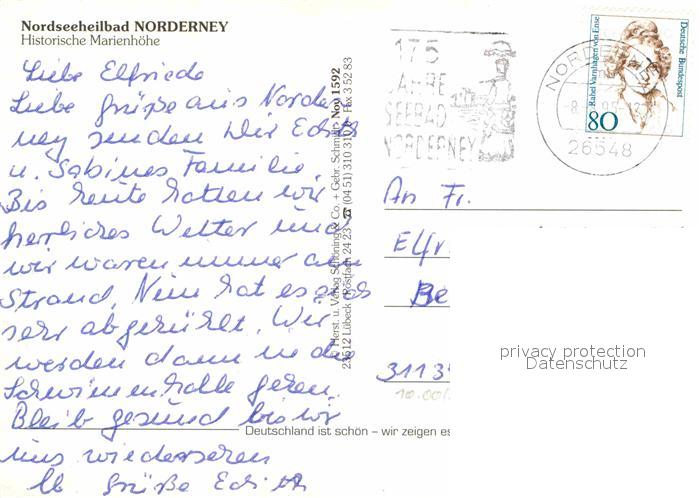 Nordseeheilbad NORDERNEY
Historische Marienhöhe
Liebe Elfriede
Liebe Grüße aus Norder
ney senden Dir Edith
u. Sabines Familie.
Bis heute hatten wir
herrliches Wetter und
wir waren immer am
Strand. Nun hat es sich
sehr abgekühlt. Wir
werden dann in die
Schwimmhalle gehen.
Bleib gesund bis wir
uns wiedersehen
lb Grüße Edith
© Herst. u. Verlag Schöning & Co. + Gebr. Schmidt · Nov 11592
23512 Lübeck (Postfach 24 23) ☎ (04 51) 310 310 · Fax 3 52 83
Deutschland ist schön – wir zeigen es
175
JAHRE
SEEBAD
NORDERNEY
NORDERNEY
26548
Rahel Varnhagen von Ense
Deutsche Bundespost
80
An Fr.
Elfr
Be
3113
privacy protection
Datenschutz